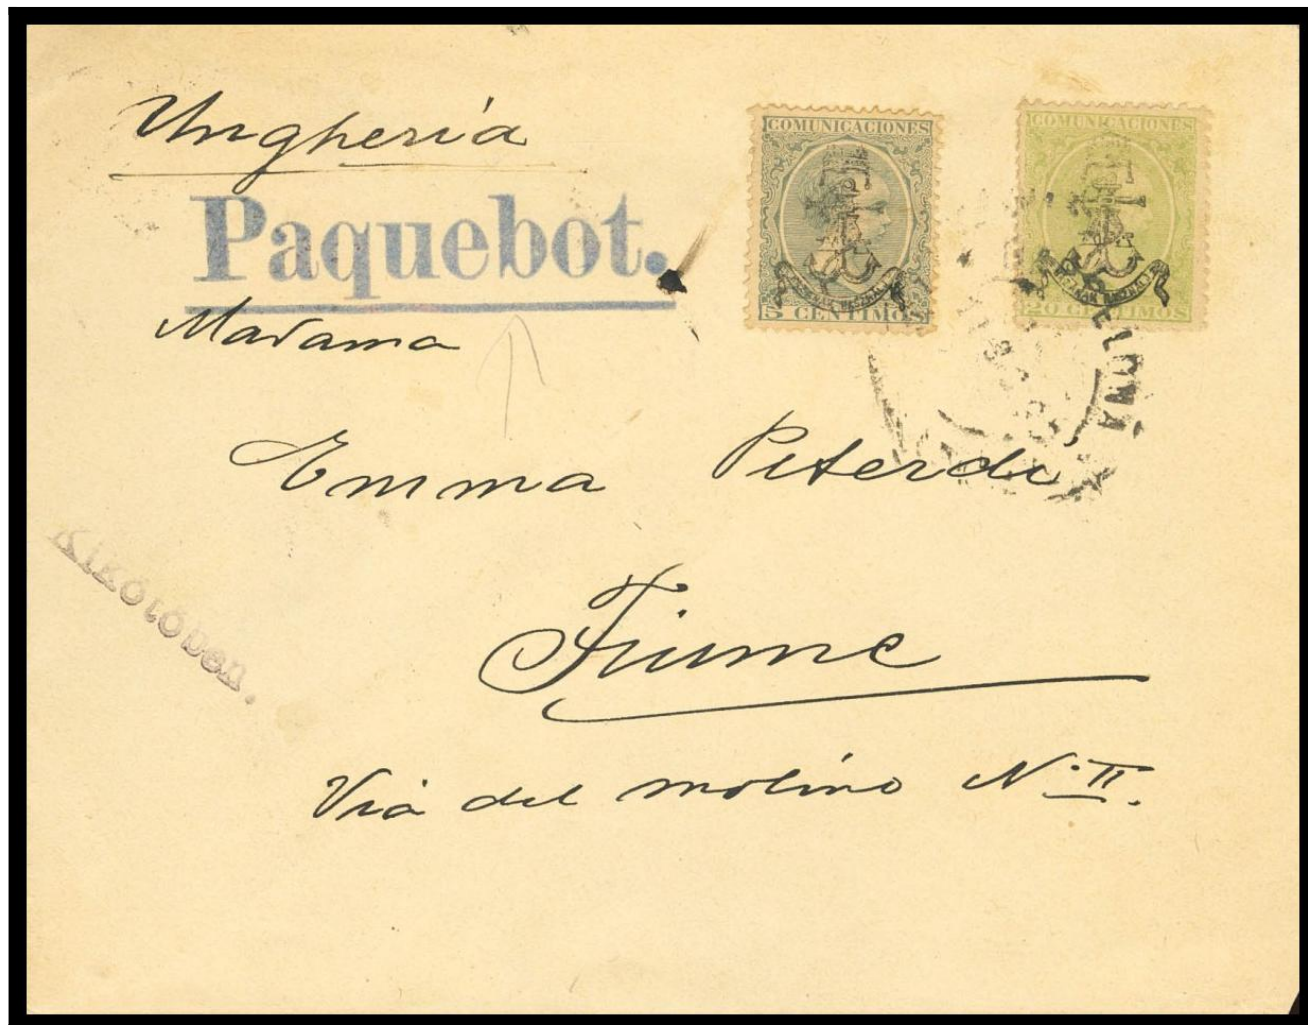 Ungheria
Paquebot.
COMUNICACIONES
5 CENTIMOS
COMUNICACIONES
20 CENTIMOS
Madama
Emma Peterdi
Kikötöben.
Fiume
Via del molino No. II.